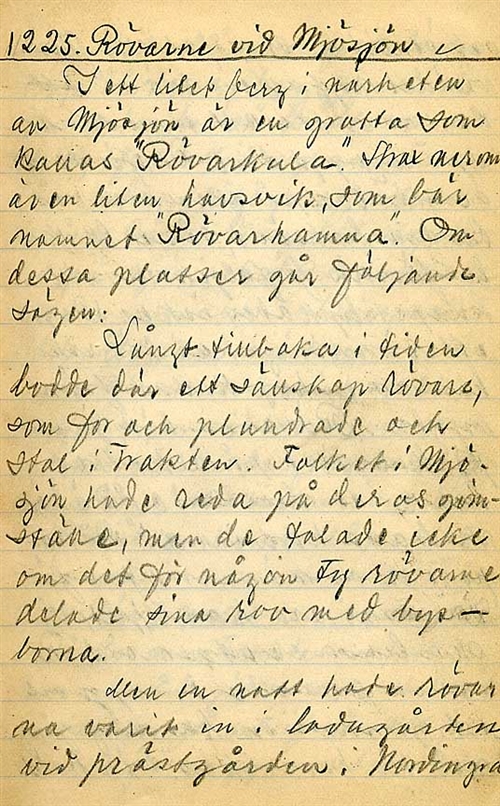 1225. Rövarne vid Mjösjön
I ett litet berg i närheten
av Mjösjön är en grotta som
kallas "Rövarkula". Strax nerom
är en liten havsvik, som bär
namnet "Rövarhamna". Om
dessa platser går följande
sägen:
Långt tillbaka i tiden
bodde där ett sällskap rövare,
som for och plundrade och
stal i trakten. Folket i Mjö-
sjön hade reda på deras göm-
ställe, men de talade icke
om det för någon ty rövarne
delade sina rov med bys-
borna.
Men en natt hade rövar
na varit in i ladugården
vid prästgården i Nordingrå